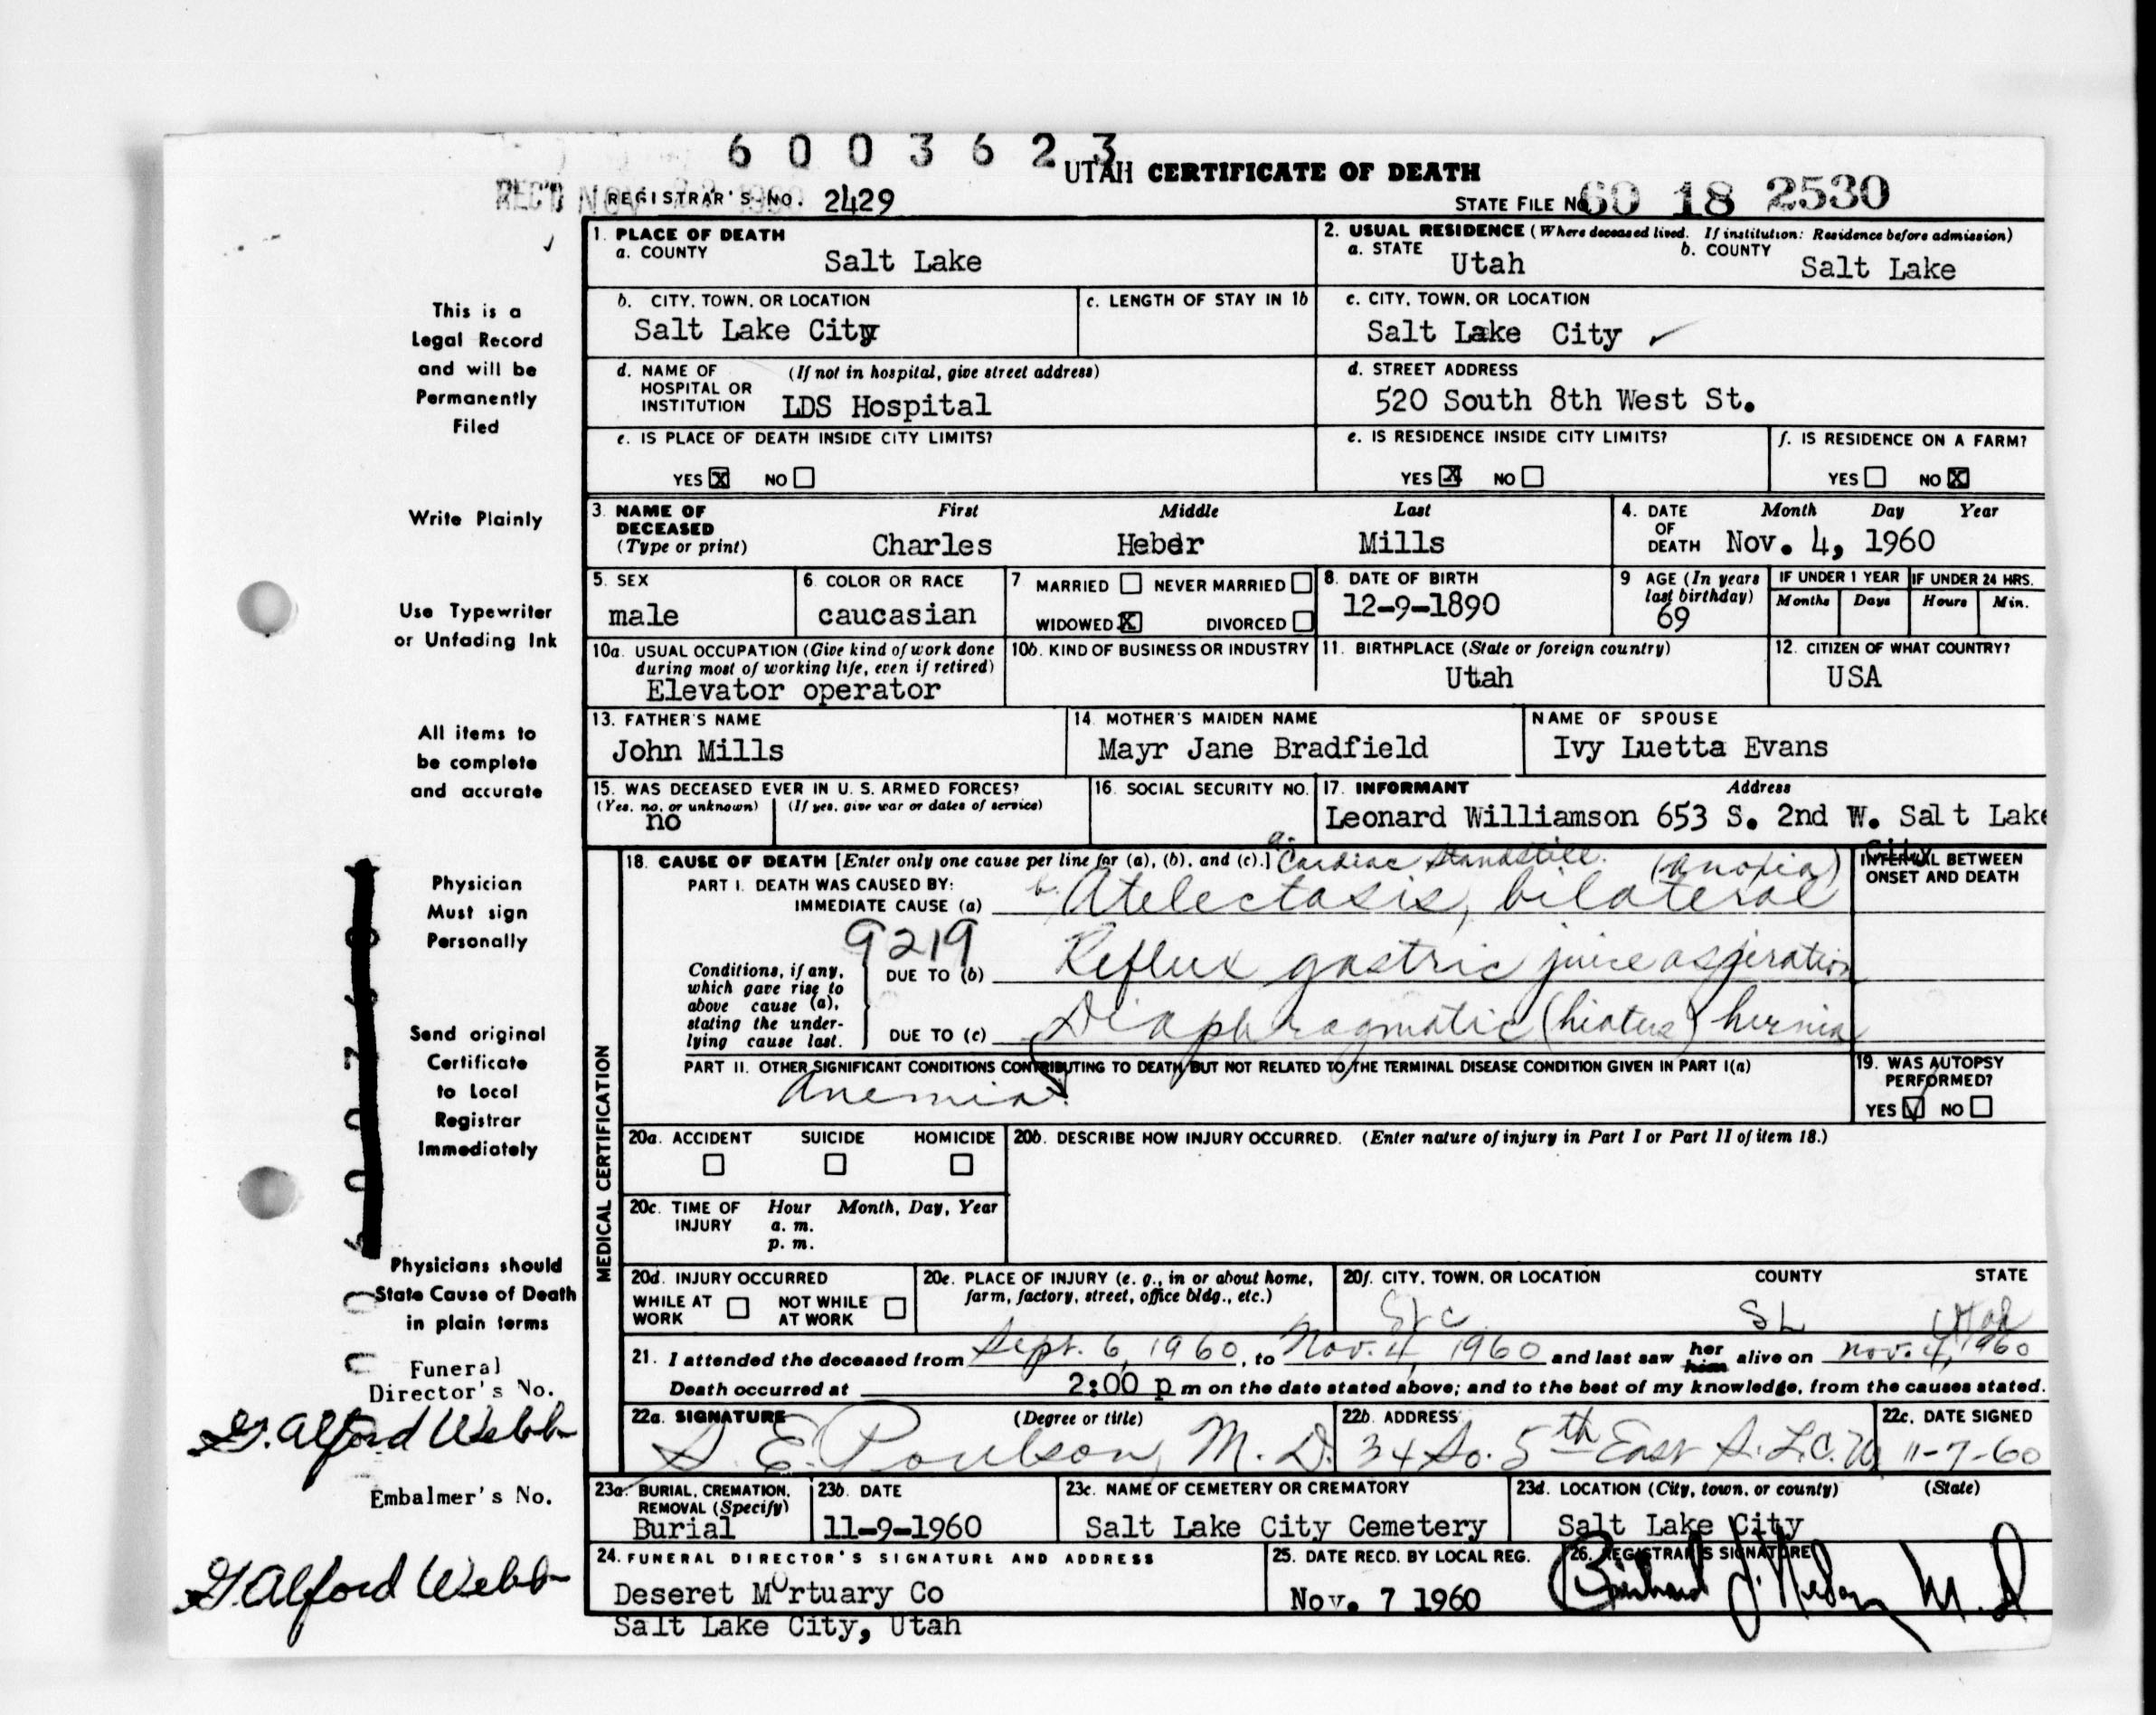 6 0 0 3 6 2 3
UTAH CERTIFICATE OF DEATH
REC'D NOV 1960
REGISTRAR'S NO. 2429
STATE FILE NO. 60 18 2530
1. PLACE OF DEATH
a. COUNTY Salt Lake
2. USUAL RESIDENCE (Where deceased lived. If institution: Residence before admission)
a. STATE Utah b. COUNTY Salt Lake
b. CITY, TOWN, OR LOCATION Salt Lake City
c. LENGTH OF STAY IN 1b
c. CITY, TOWN, OR LOCATION Salt Lake City
d. NAME OF HOSPITAL OR INSTITUTION (If not in hospital, give street address) LDS Hospital
d. STREET ADDRESS 520 South 8th West St.
e. IS PLACE OF DEATH INSIDE CITY LIMITS?
YES X NO
e. IS RESIDENCE INSIDE CITY LIMITS?
YES X NO
f. IS RESIDENCE ON A FARM?
YES NO X
3. NAME OF DECEASED (Type or print)
First Middle Last
Charles Heber Mills
4. DATE OF DEATH Month Day Year
Nov. 4, 1960
5. SEX male
6. COLOR OR RACE caucasian
7 MARRIED NEVER MARRIED
WIDOWED X DIVORCED
8. DATE OF BIRTH 12-9-1890
9 AGE (In years last birthday) 69
IF UNDER 1 YEAR Months Days
IF UNDER 24 HRS. Hours Min.
10a. USUAL OCCUPATION (Give kind of work done during most of working life, even if retired)
Elevator operator
10b. KIND OF BUSINESS OR INDUSTRY
11. BIRTHPLACE (State or foreign country) Utah
12. CITIZEN OF WHAT COUNTRY? USA
13. FATHER'S NAME John Mills
14. MOTHER'S MAIDEN NAME Mayr Jane Bradfield
NAME OF SPOUSE Ivy Luetta Evans
15. WAS DECEASED EVER IN U. S. ARMED FORCES?
(Yes, no, or unknown) (If yes, give war or dates of service)
no
16. SOCIAL SECURITY NO.
17. INFORMANT Address
Leonard Williamson 653 S. 2nd W. Salt Lake
City
MEDICAL CERTIFICATION
18. CAUSE OF DEATH [Enter only one cause per line for (a), (b), and (c).] a. Cardiac Standstill. (anoxia)
PART I. DEATH WAS CAUSED BY:
IMMEDIATE CAUSE (a) b. Atelectasis, bilateral
INTERVAL BETWEEN ONSET AND DEATH
9219
Conditions, if any, which gave rise to above cause (a), stating the underlying cause last.
DUE TO (b) Reflux gastric juice aspiration
DUE TO (c) Diaphragmatic (hiatus) hernia
PART II. OTHER SIGNIFICANT CONDITIONS CONTRIBUTING TO DEATH BUT NOT RELATED TO THE TERMINAL DISEASE CONDITION GIVEN IN PART I(a)
Anemia
19. WAS AUTOPSY PERFORMED?
YES NO
20a. ACCIDENT SUICIDE HOMICIDE
20b. DESCRIBE HOW INJURY OCCURRED. (Enter nature of injury in Part I or Part II of item 18.)
20c. TIME OF INJURY Hour Month, Day, Year
a. m.
p. m.
20d. INJURY OCCURRED
WHILE AT WORK NOT WHILE AT WORK
20e. PLACE OF INJURY (e. g., in or about home, farm, factory, street, office bldg., etc.)
20f. CITY, TOWN, OR LOCATION COUNTY STATE
SLC SL Utah
21. I attended the deceased from Sept. 6, 1960, to Nov. 4, 1960 and last saw her him alive on Nov. 4, 1960
Death occurred at 2:00 p m on the date stated above; and to the best of my knowledge, from the causes stated.
22a. SIGNATURE (Degree or title)
S. E. Poulson, M. D.
22b. ADDRESS 34 So. 5th East S. L. C. U
22c. DATE SIGNED 11-7-60
23a. BURIAL, CREMATION, REMOVAL (Specify) Burial
23b. DATE 11-9-1960
23c. NAME OF CEMETERY OR CREMATORY Salt Lake City Cemetery
23d. LOCATION (City, town, or county) (State)
Salt Lake City
24. FUNERAL DIRECTOR'S SIGNATURE AND ADDRESS
Deseret Mortuary Co
Salt Lake City, Utah
25. DATE RECD. BY LOCAL REG. Nov. 7 1960
26. REGISTRAR'S SIGNATURE
M. D
This is a
Legal Record
and will be
Permanently
Filed
Write Plainly
Use Typewriter
or Unfading Ink
All items to
be complete
and accurate
Physician
Must sign
Personally
Send original
Certificate
to Local
Registrar
Immediately
Physicians should
State Cause of Death
in plain terms
Funeral
Director's No.
G. Alford Webb
Embalmer's No.
G. Alford Webb